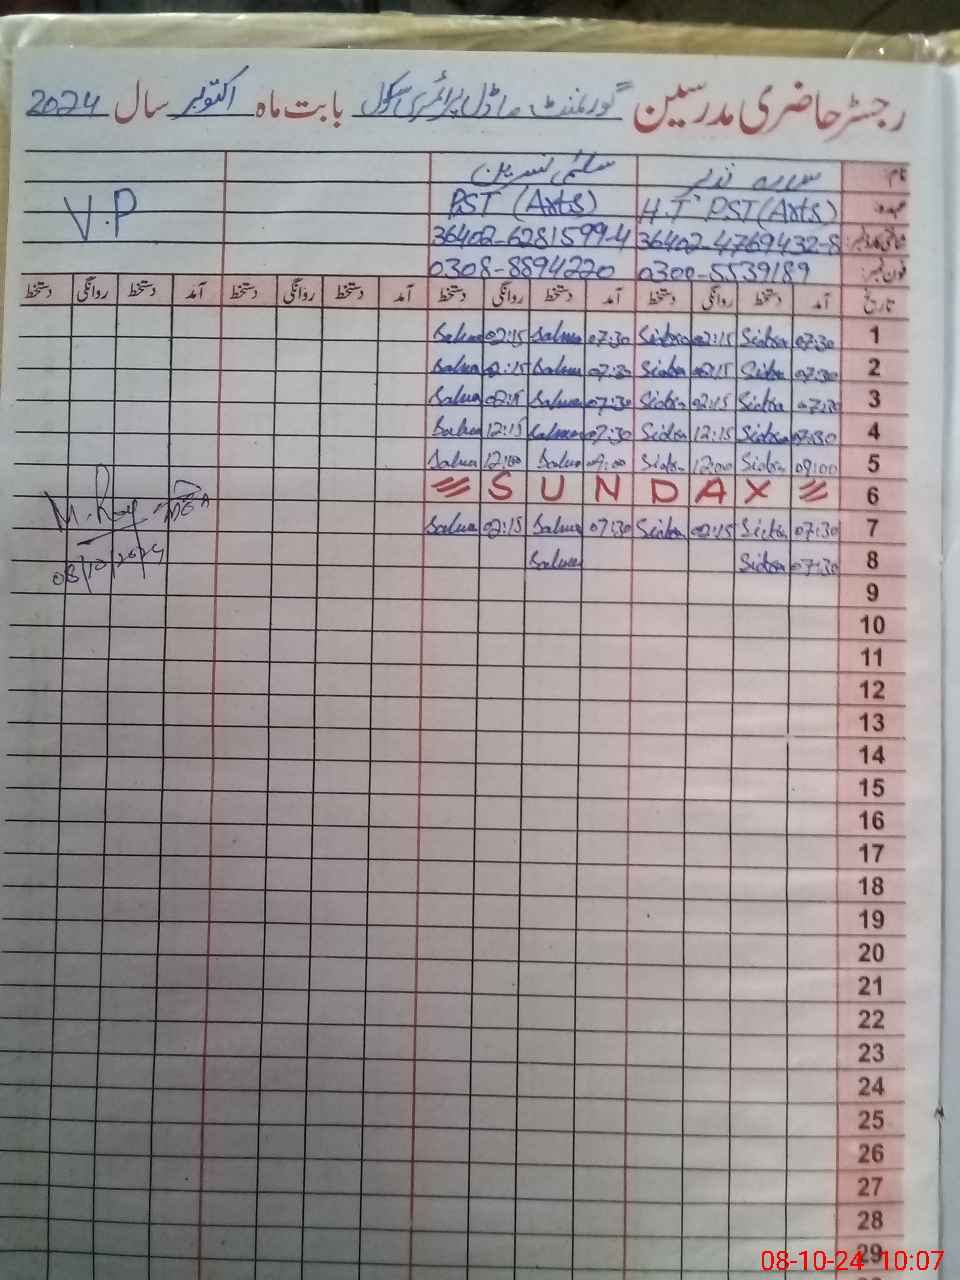 رجسٹر حاضری مدرسین گورنمنٹ ماڈل پرائمری سکول بابت ماہ اکتوبر سال 2024
نام: سدرہ نذیر سلمیٰ نسرین
عہدہ: H.T PST(Arts) PST (Arts) V.P
شناختی کارڈ نمبر: 36402-4769432-8 36402-6281599-4
فون نمبر: 0300-5539189 0308-8894220
تاریخ آمد دستخط روانگی دستخط آمد دستخط روانگی دستخط آمد دستخط روانگی دستخط آمد دستخط روانگی دستخط
1 07:30 Sidra 02:15 Sidra 07:30 Salma 02:15 Salma
2 07:30 Sidra 02:15 Sidra 07:30 Salma 02:15 Salma
3 07:30 Sidra 02:15 Sidra 07:30 Salma 02:15 Salma
4 07:30 Sidra 12:15 Sidra 07:30 Salma 12:15 Salma
5 09:00 Sidra 12:00 Sidra 09:00 Salma 12:00 Salma
6 SUNDAY
7 07:30 Sidra 02:15 Sidra 07:30 Salma 02:15 Salma
8 07:30 Sidra Salma
08/10/2024
9
10
11
12
13
14
15
16
17
18
19
20
21
22
23
24
25
26
27
28
29
08-10-24 10:07